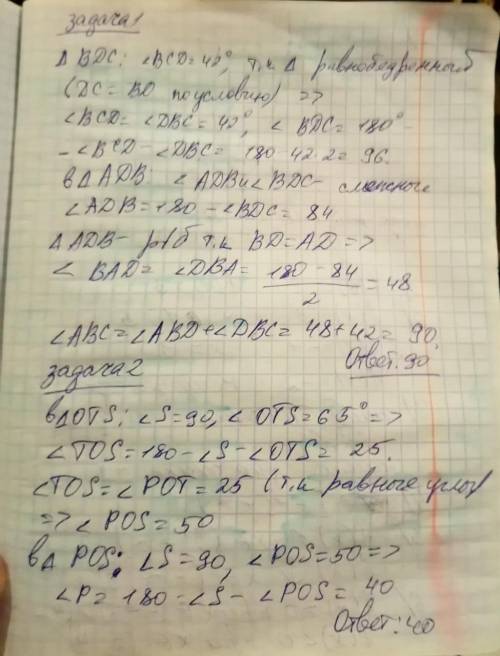 задача 1
Δ BDC: ∠BCD=42°, т.к. Δ равнобедренный
(DC = BD по условию) =>
∠BCD = ∠DBC = 42°, ∠ BDC = 180° -
- ∠BCD - ∠DBC = 180-42·2 = 96.
в Δ ADB: ∠ADB и ∠BDC - смежные
∠ADB = 180 - ∠BDC = 84.
Δ ADB - р/б т.к BD=AD =>
∠ BAD = ∠DBA = (180-84)/2 = 48
∠ABC = ∠ABD + ∠DBC = 48+42 = 90.
Ответ: 90
задача 2
в Δ OTS: ∠S=90, ∠ OTS = 65° =>
∠TOS = 180 - ∠S - ∠OTS = 25.
∠TOS = ∠POT = 25 (т.к равные углы)
=> ∠ POS = 50
в Δ POS: ∠S = 90, ∠POS = 50 =>
∠P = 180 - ∠S - ∠POS = 40
Ответ: 40